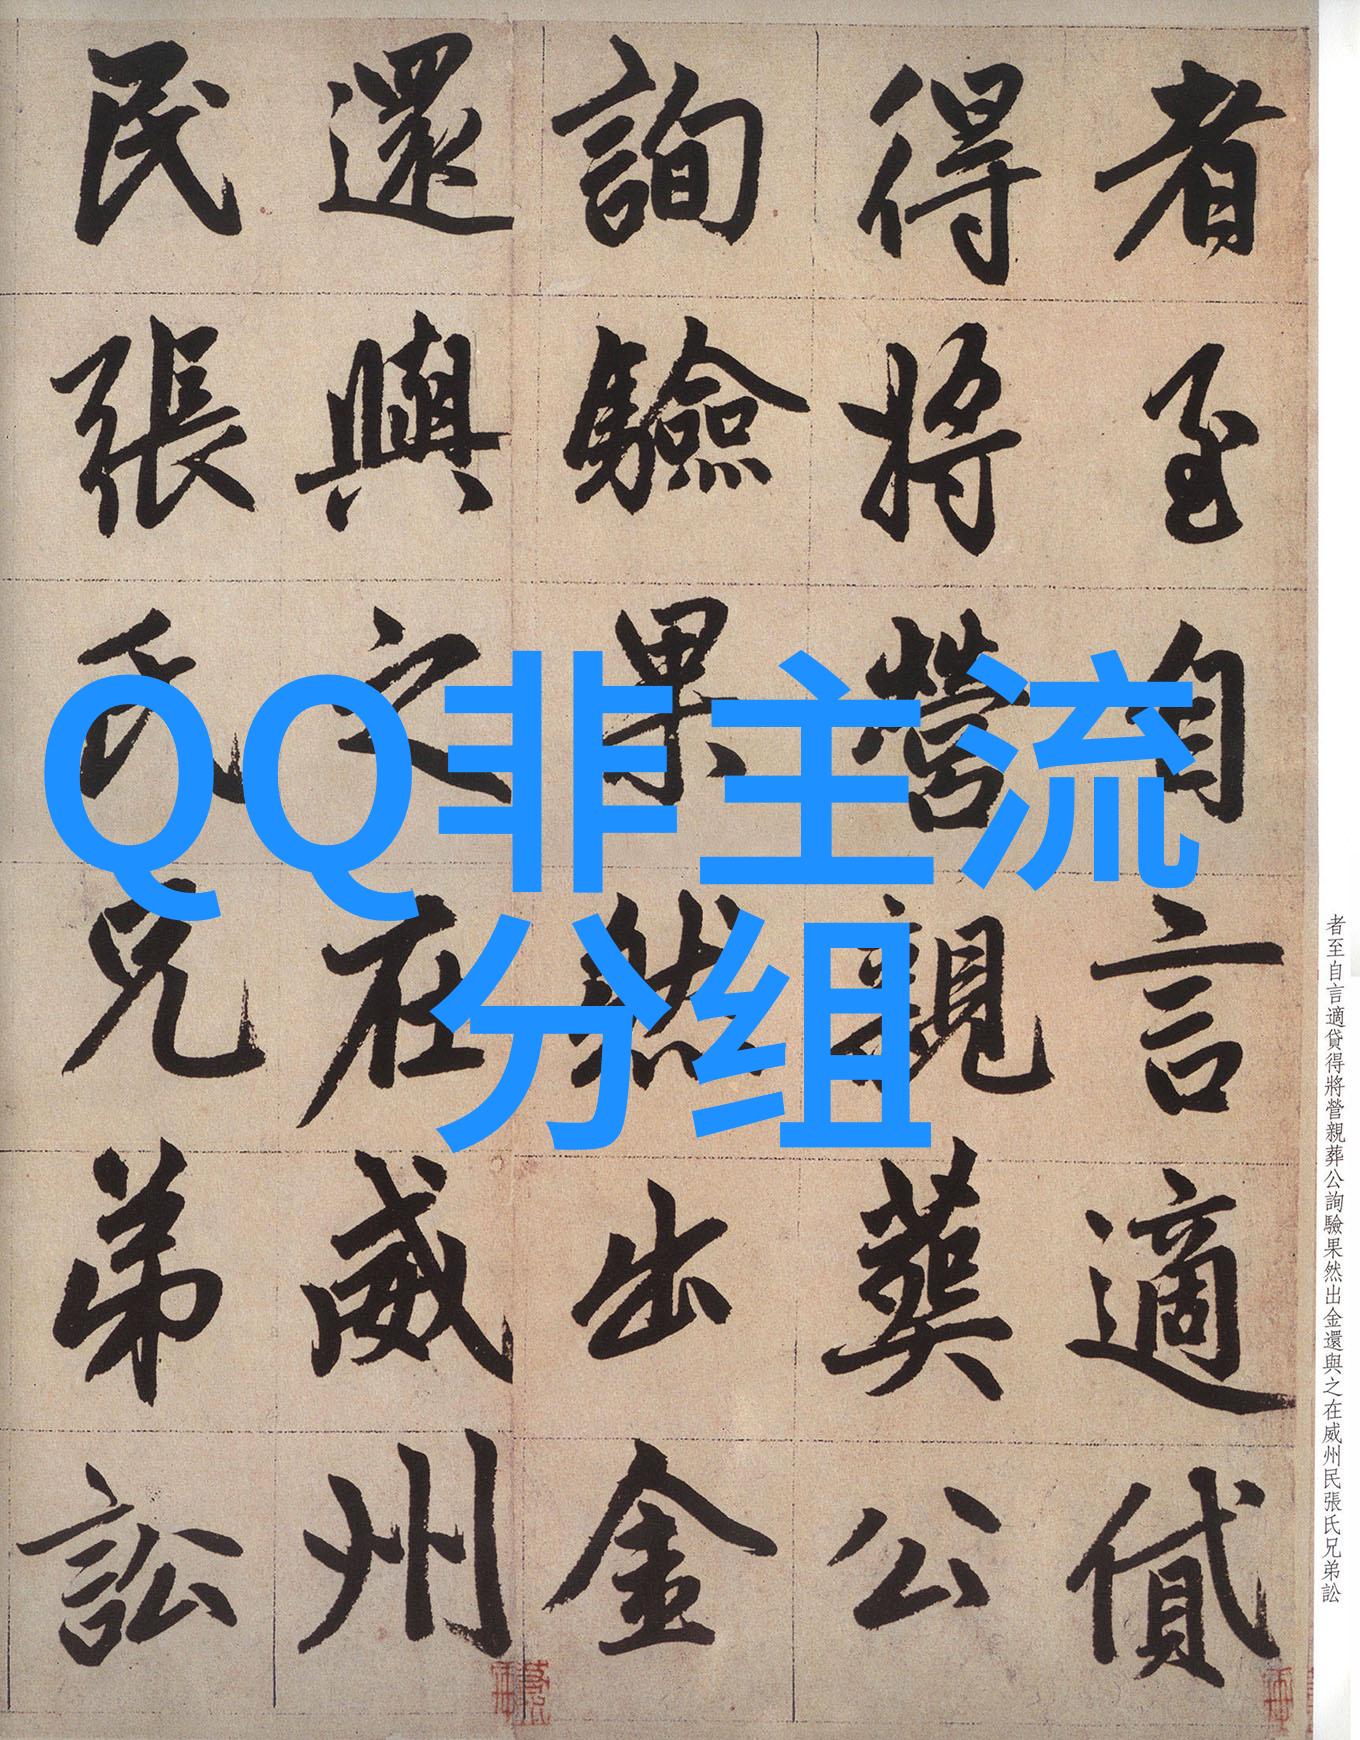 者至自言適貸
得將營親葬公
詢驗果然出金
還與之在威州
民張氏兄弟訟
者至自言適貸得將營親葬公詢驗果然出金還與之在威州民張氏兄弟訟
QQ非主流
分组